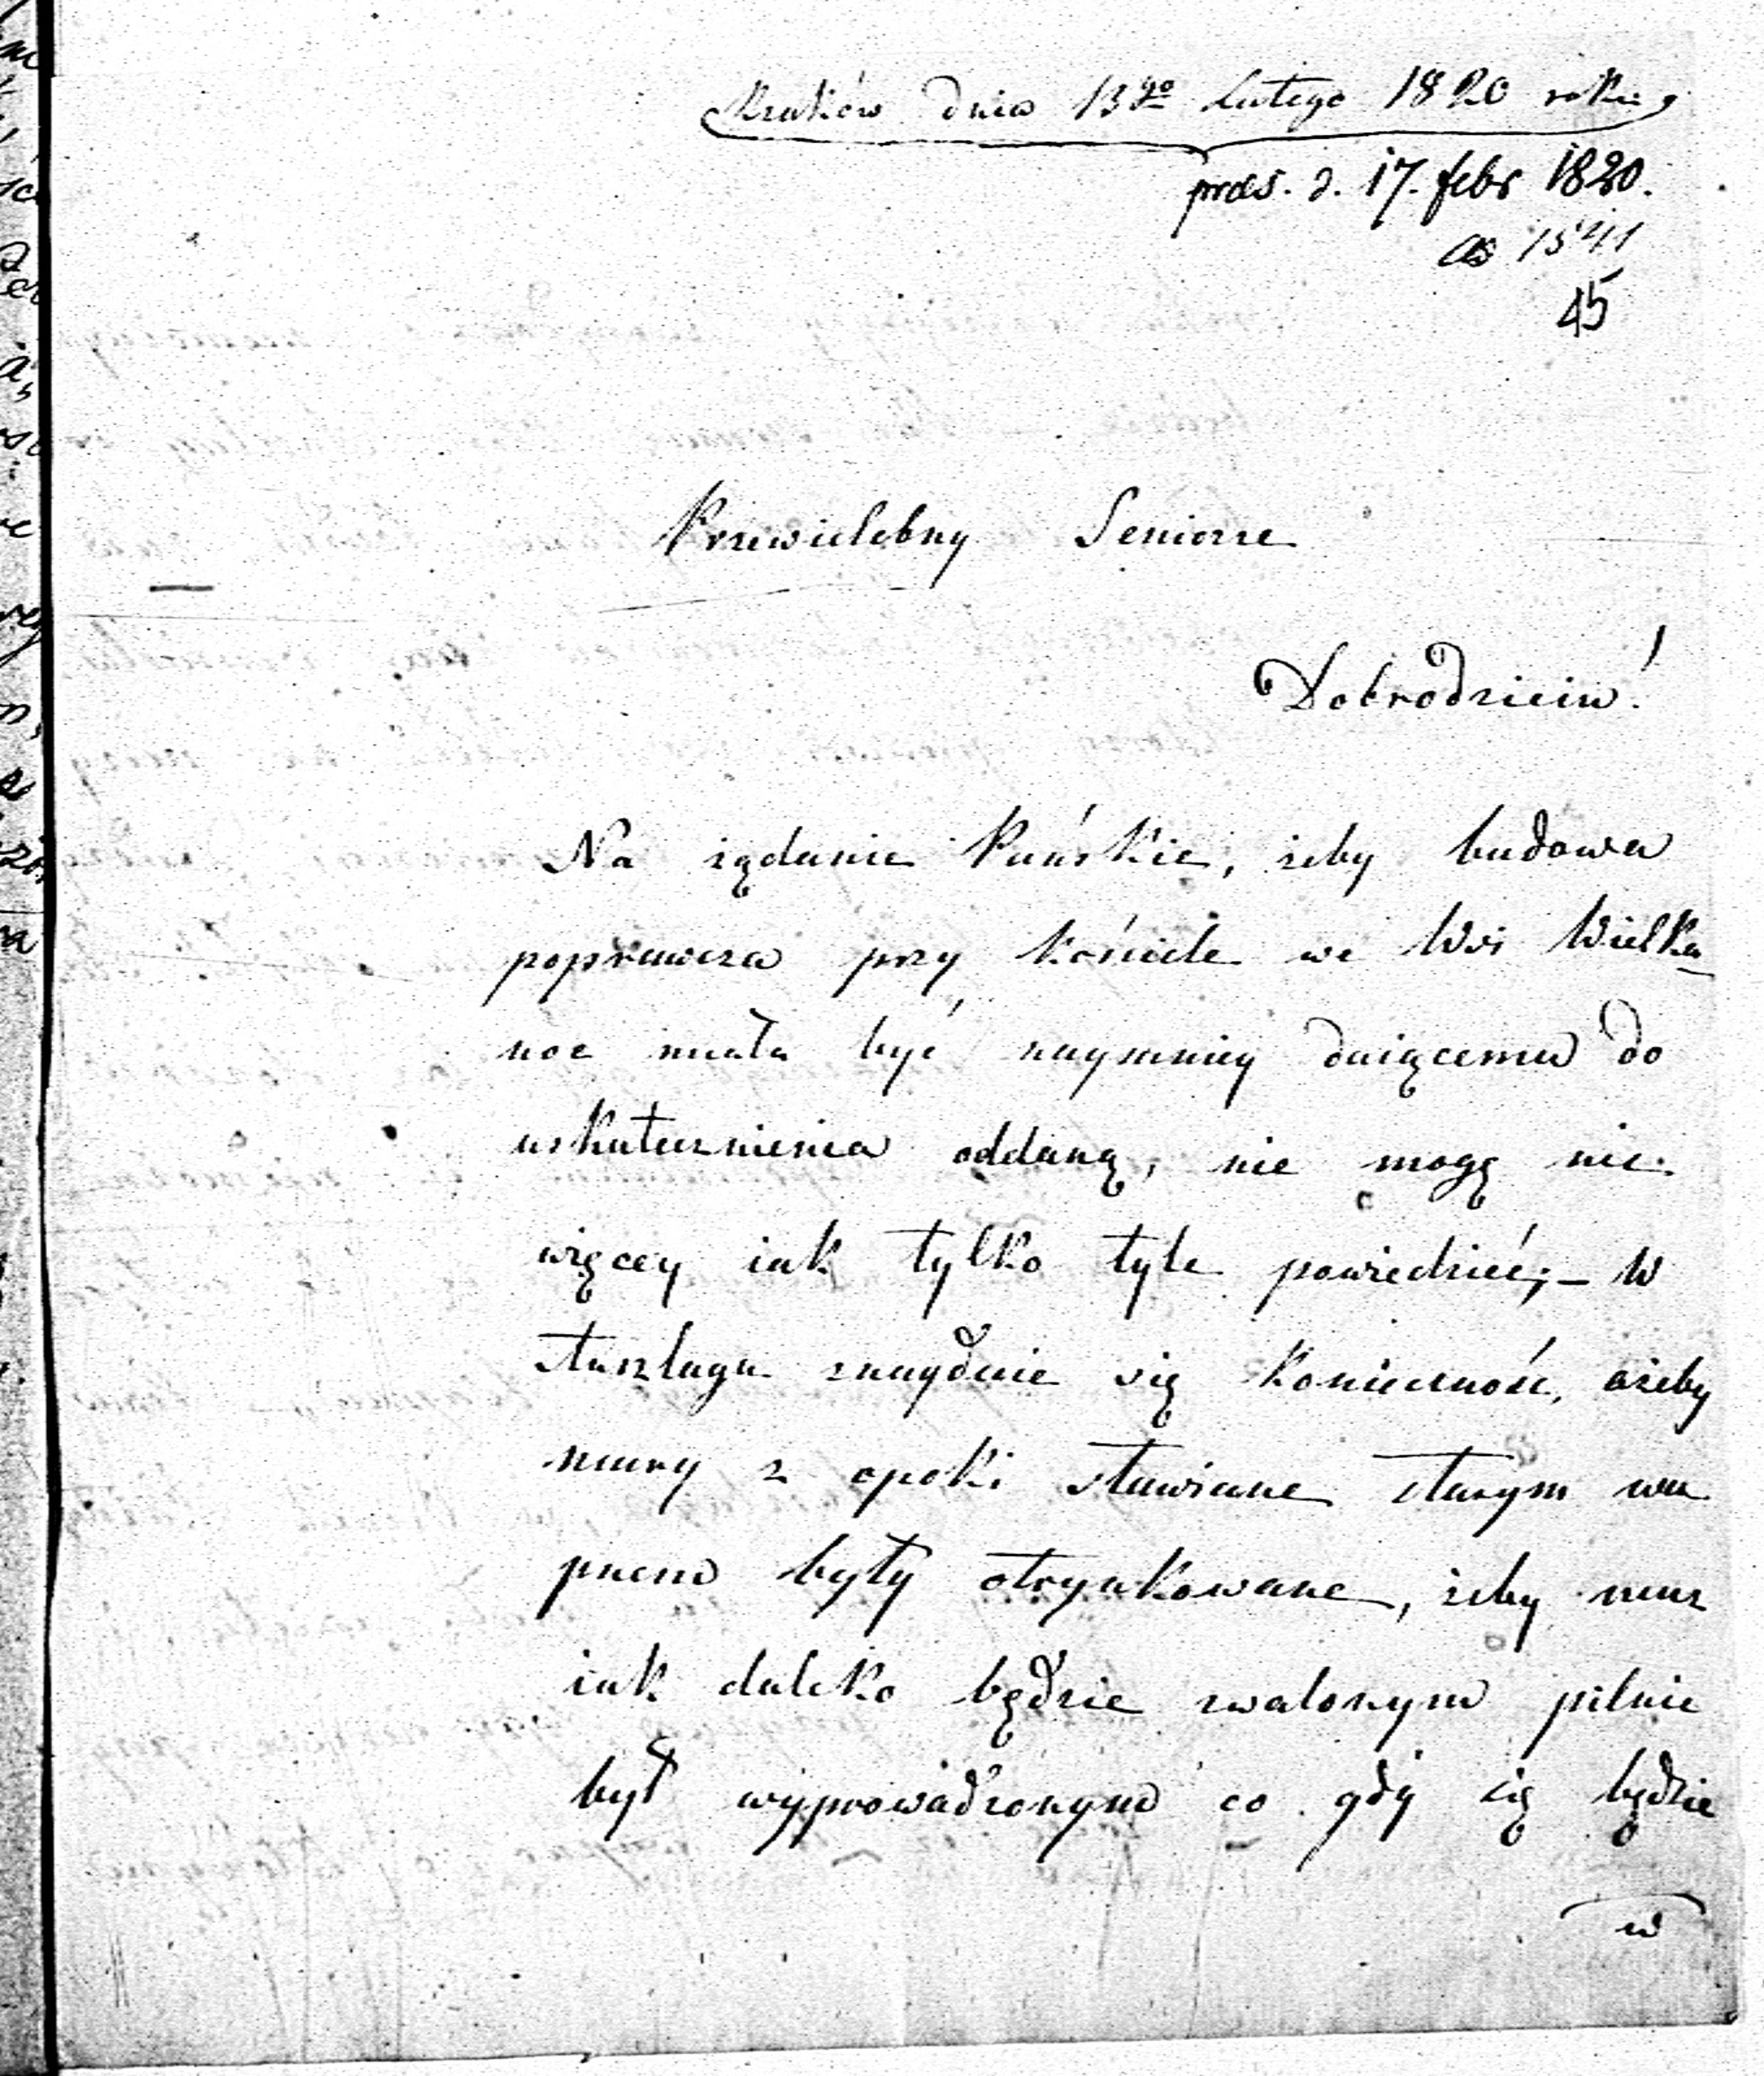 Kraków dnia 13go Lutego 1820 roku,
præs. d. 17. febr 1820.
45
Przewielebny Seniorze
Dobrodzieiu!
Na żądanie Pańskie, żeby budowa
poprawcza przy kościele we Wsi Wielka
noc miała być naymniey daiącemu do
uskutecznienia oddaną, nie mogę nic
więcey iak tylko tyle powiedzieć; – W
Anszlagu znayduie się konieczność, ażeby
mury z opoki stawiane starym wa
pnem były otrynkowane, żeby mur
iak daleko będzie zwalonym pilnie
był wyprowadzonym co gdy się będzie
w